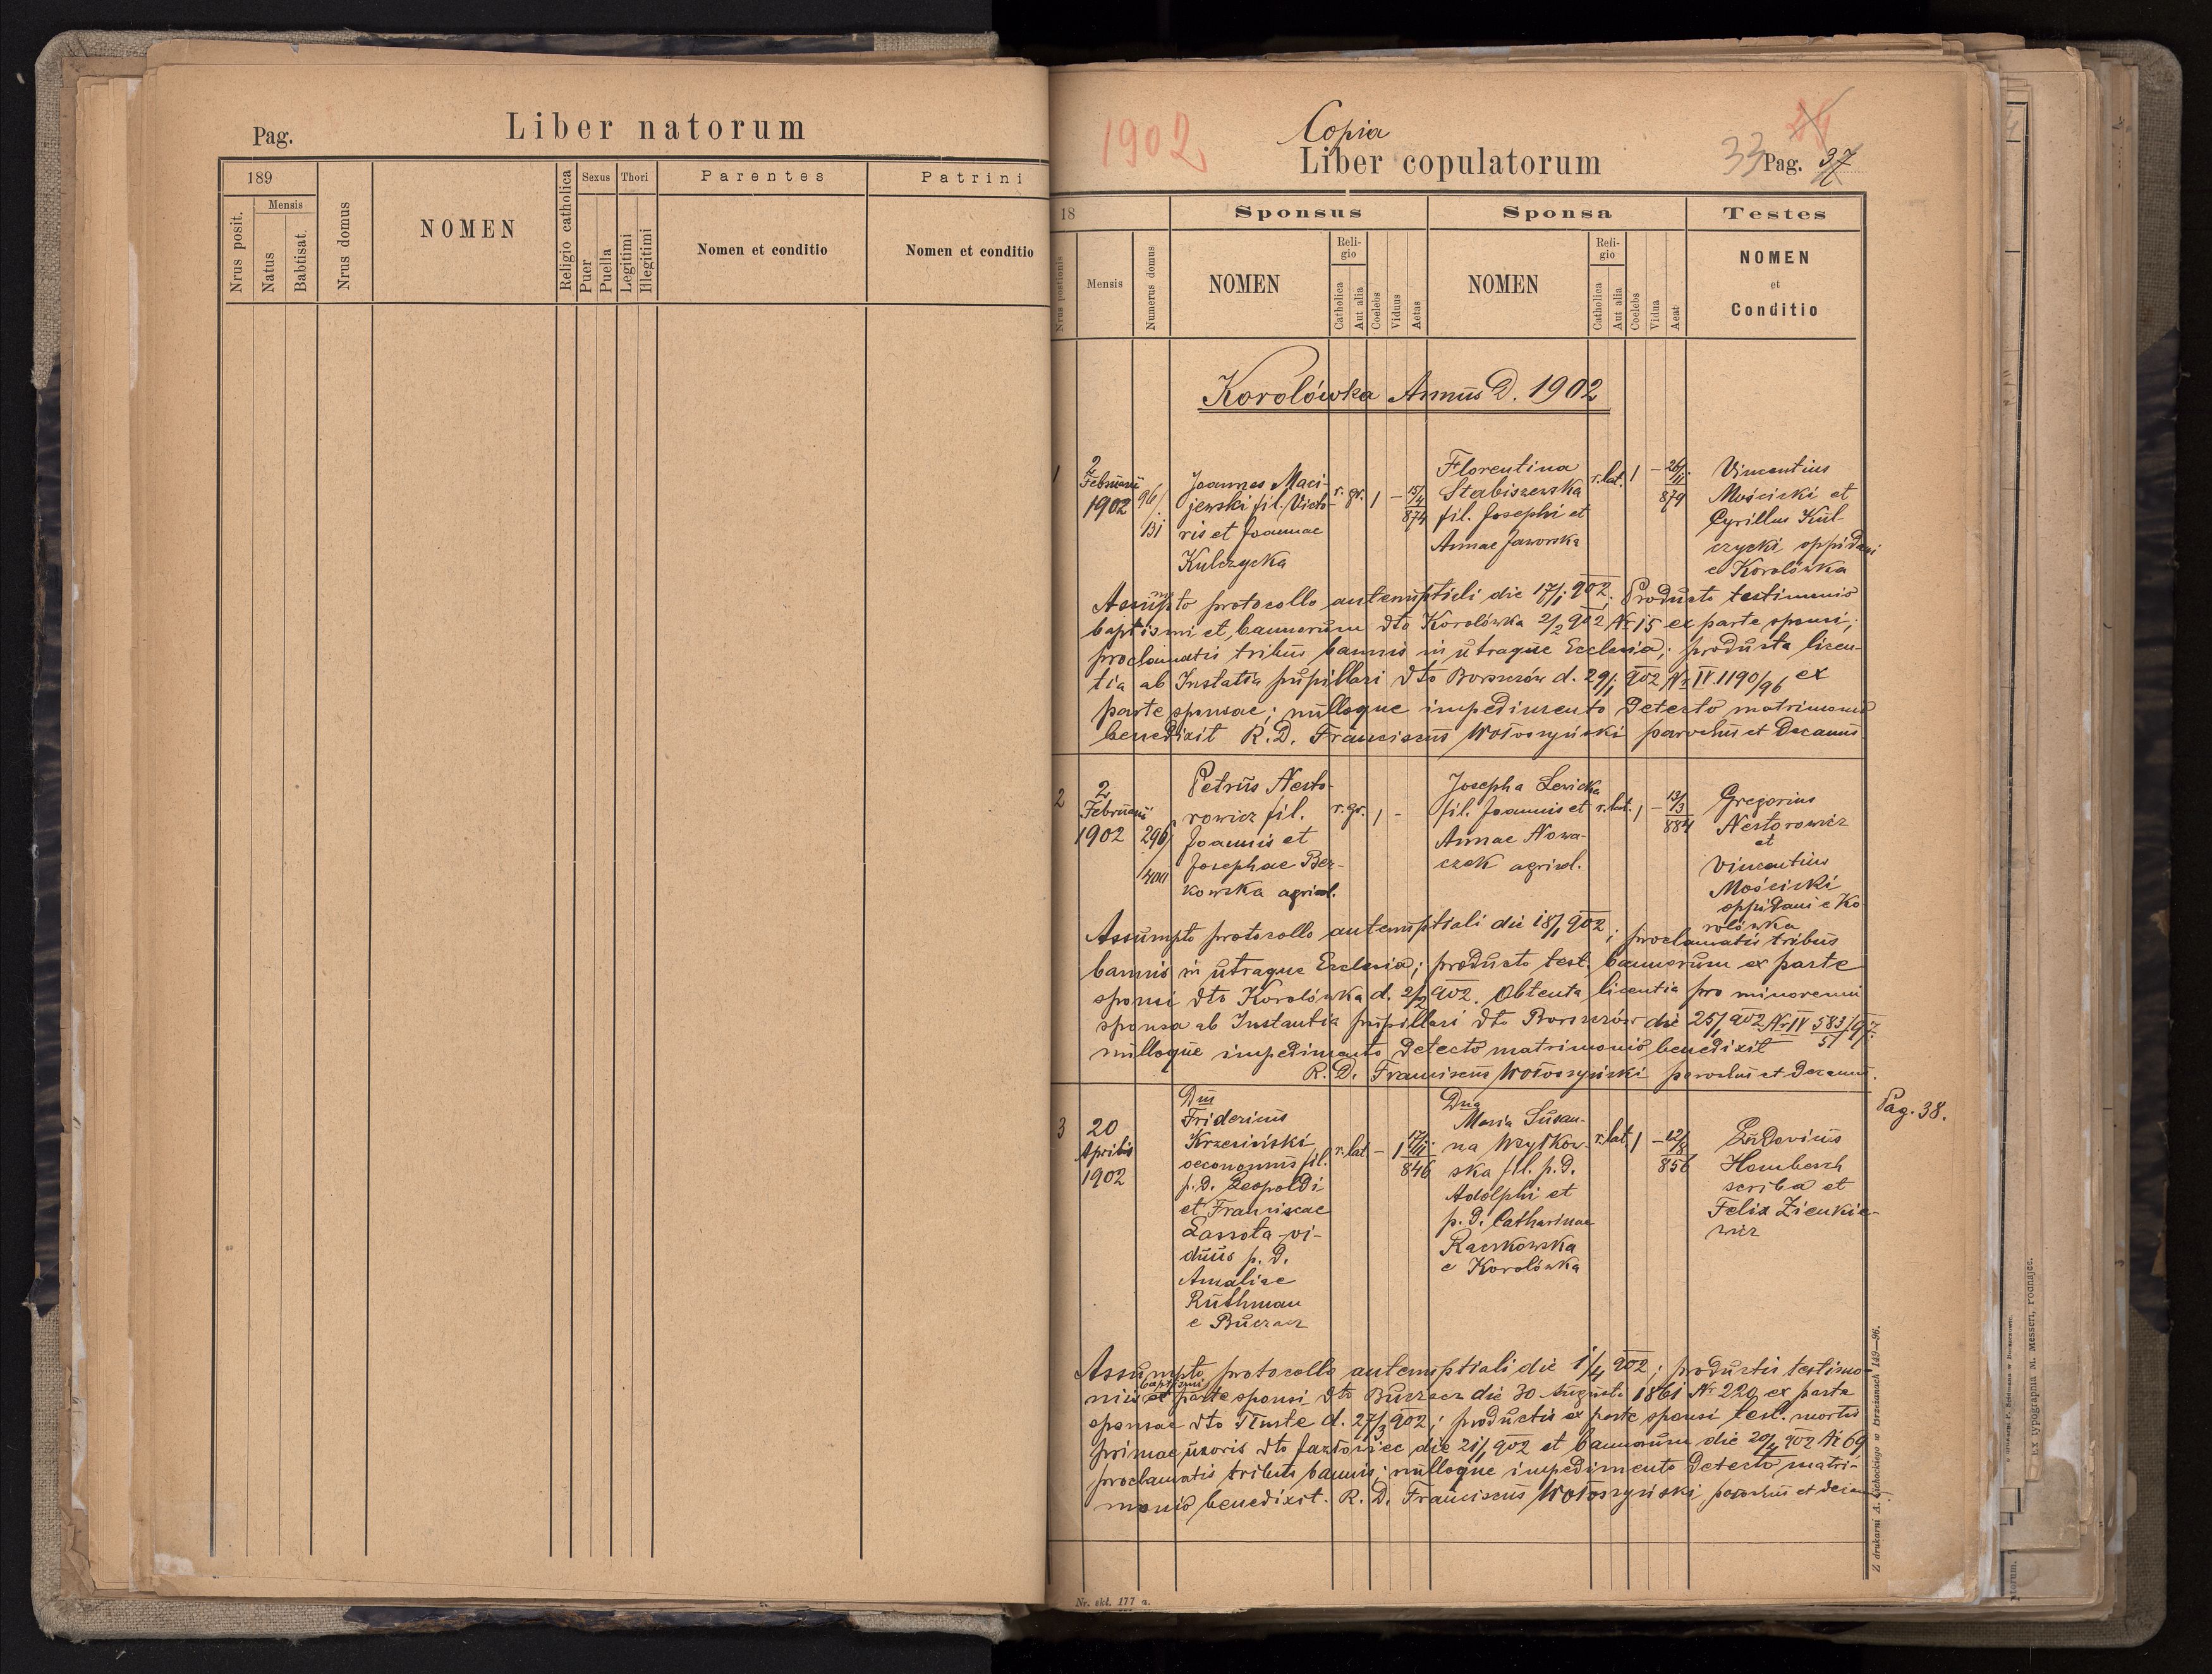 Pag.
Liber natorum
189
Mensis
Nrus posit.
Natus
Babtisat.
Nrus domus
NOMEN
Religio catholica
Sexus
Puer
Puella
Thori
Legitimi
Illegitimi
Parentes
Nomen et conditio
Patrini
Nomen et conditio
1902
Copia
Liber copulatorum
33
Pag. 37
18
Sponsus
Sponsa
Testes
Nrus positionis
Mensis
Numerus domus
NOMEN
Reli-
gio
Catholica
Aut alia
Coelebs
Viduus
Aetas
NOMEN
Reli-
gio
Catholica
Aut alia
Coelebs
Vidua
Aeat
NOMEN
et
Conditio
Korolówka Annus D. 1902
1
2
Februarii
1902
96/
Bi
Joannes Maci-
jewski fil. Victo-
ris et Joannae
Kulczycka
r. gr.
1
-
15/4
874
Florentina
Stabiszewska
fil. Josephi et
Annae Jaworska
r. lat.
1
-
26/11
879
Vincentius
Mościcki et
Cyrillus Kul-
czycki oppidani
e Korolówka
Assumpto protocollo antenuptiali die 17/1 902; Producto testimonio
baptismi et bannorum dto Korolówka 2/2 902 Nr 15 ex parte sponsi;
proclamatis tribus bannis in utraque Ecclesia; producta licen-
tia ab Instatia pupillari dto Borszczów d. 29/1 902 Nr IV 1190/96 ex
parte sponsae; nulloque impedimento detecto matrimonio
benedixit R. D. Franciscus Wołoszyński parochus et Decanus
2
2
Februarii
1902
296/
Petrus Nesto-
rowicz fil.
Joannis et
Josephae Ber-
kowska agricol.
r. gr.
1
-
Josepha Lewicka
fil. Joannis et
Annae Nowa-
czek agricol.
r. lat.
1
-
13/3
884
Gregorius
Nestorowicz
et
Vincentius
Mościcki
oppidani e Ko
rolówka
Assumpto protocollo antenuptiali die 18/1 902; proclamatis tribus
bannis in utraque Ecclesia; producto test. bannorum ex parte
sponsi dto Korolówka d. 2/2 902. Obtenta licentia pro minorenni
sponsa ab Instantia pupillari dto Borszczów die 25/1 902 Nr IV 583/97
nulloque impedimento detecto matrimonio benedixit
R. D. Franciscus Wołoszyński parochus et Decanus.
Pag. 38.
3
20
Aprilis
1902
Dnus
Fridericus
Krzesiński
oeconomus fil.
p. D. Leopoldi
et Franciscae
Lassota - vi-
duus p. D.
Amaliae
Ruthman
e Buczacz
r. lat
-
1
17/11
846
Dna
Maria Susan-
na Wzytkow-
ska fil. p. D.
Adolphi et
p. D. Catharinae
Raczkowska
e Korolówka
r. lat
1
-
12/8
856
Ludovicus
Hombesch
scriba et
Felix Zienkie-
wicz
Assumpto protocollo antenuptiali die 1/4 902; productis testimo-
niis baptismi ex parte sponsi dto Buczacz die 30 Augusti 1861 Nr 220 ex parte
sponsae dto Tłuste d. 27/3 902; productis ex parte sponsi test. mortis
primae uxoris dto Jazłowiec die 21/1 902 et bannorum die 20/4 902 Nr 69
proclamatis tribus bannis; nulloque impedimento detecto matri-
monio benedixit. R. D. Franciscus Wołoszyński parochus et decanus.
Nr. skł. 177 a.